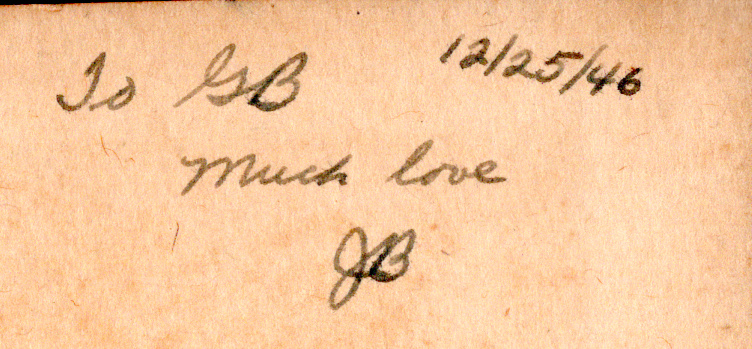 To GB 12/25/46
Much love
JB